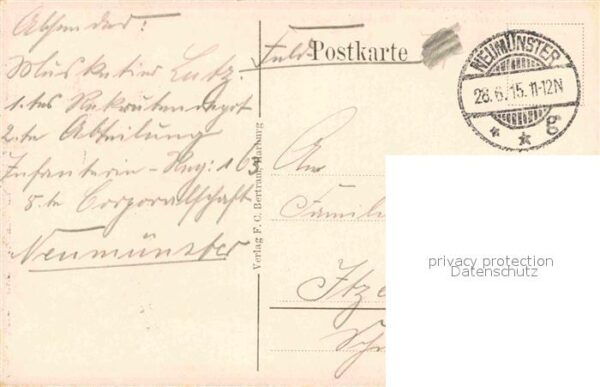 Absender:
Musketier Lutz.
1. tes Rekrutendepot
2. te Abteilung
Infanterie-Reg: 163
5. te Corporalschaft
Neumünster
Verlag F. C. Bertram, Harburg
Feld Postkarte
NEUMÜNSTER
28.6.15.11-12N
* * g
An
Famili
Itze
privacy protection
Datenschutz